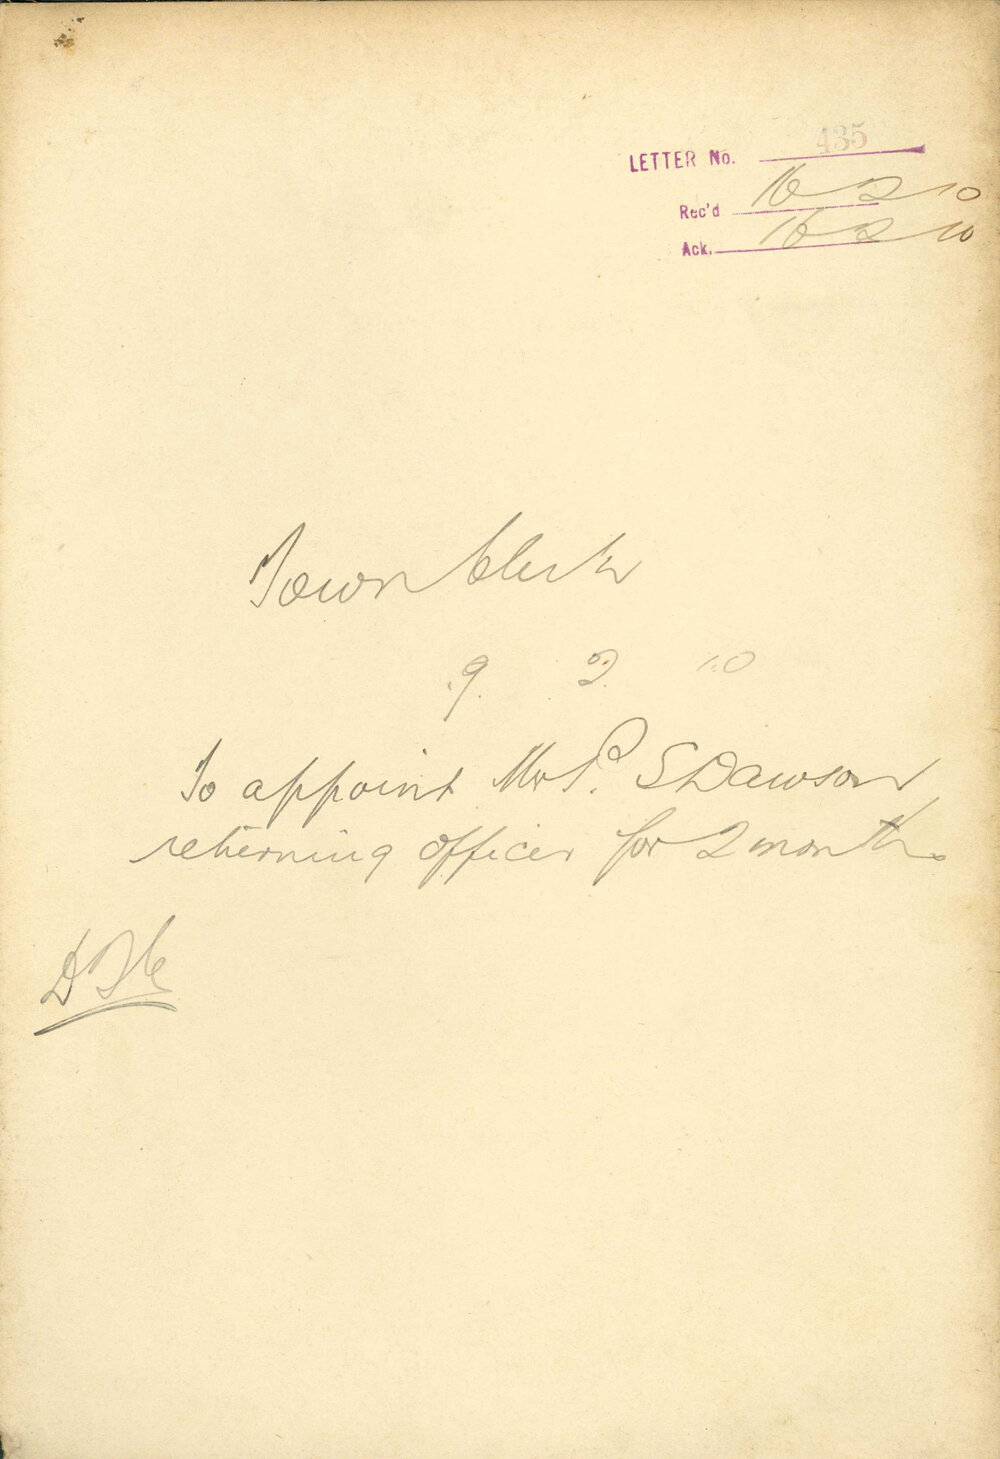 LETTER No. 435
Rec'd 16 2 10
Ack. 16 2 10
Town Clerk
9. 2. 10
To appoint Mr P. S Dawson
returning officer for 2 months